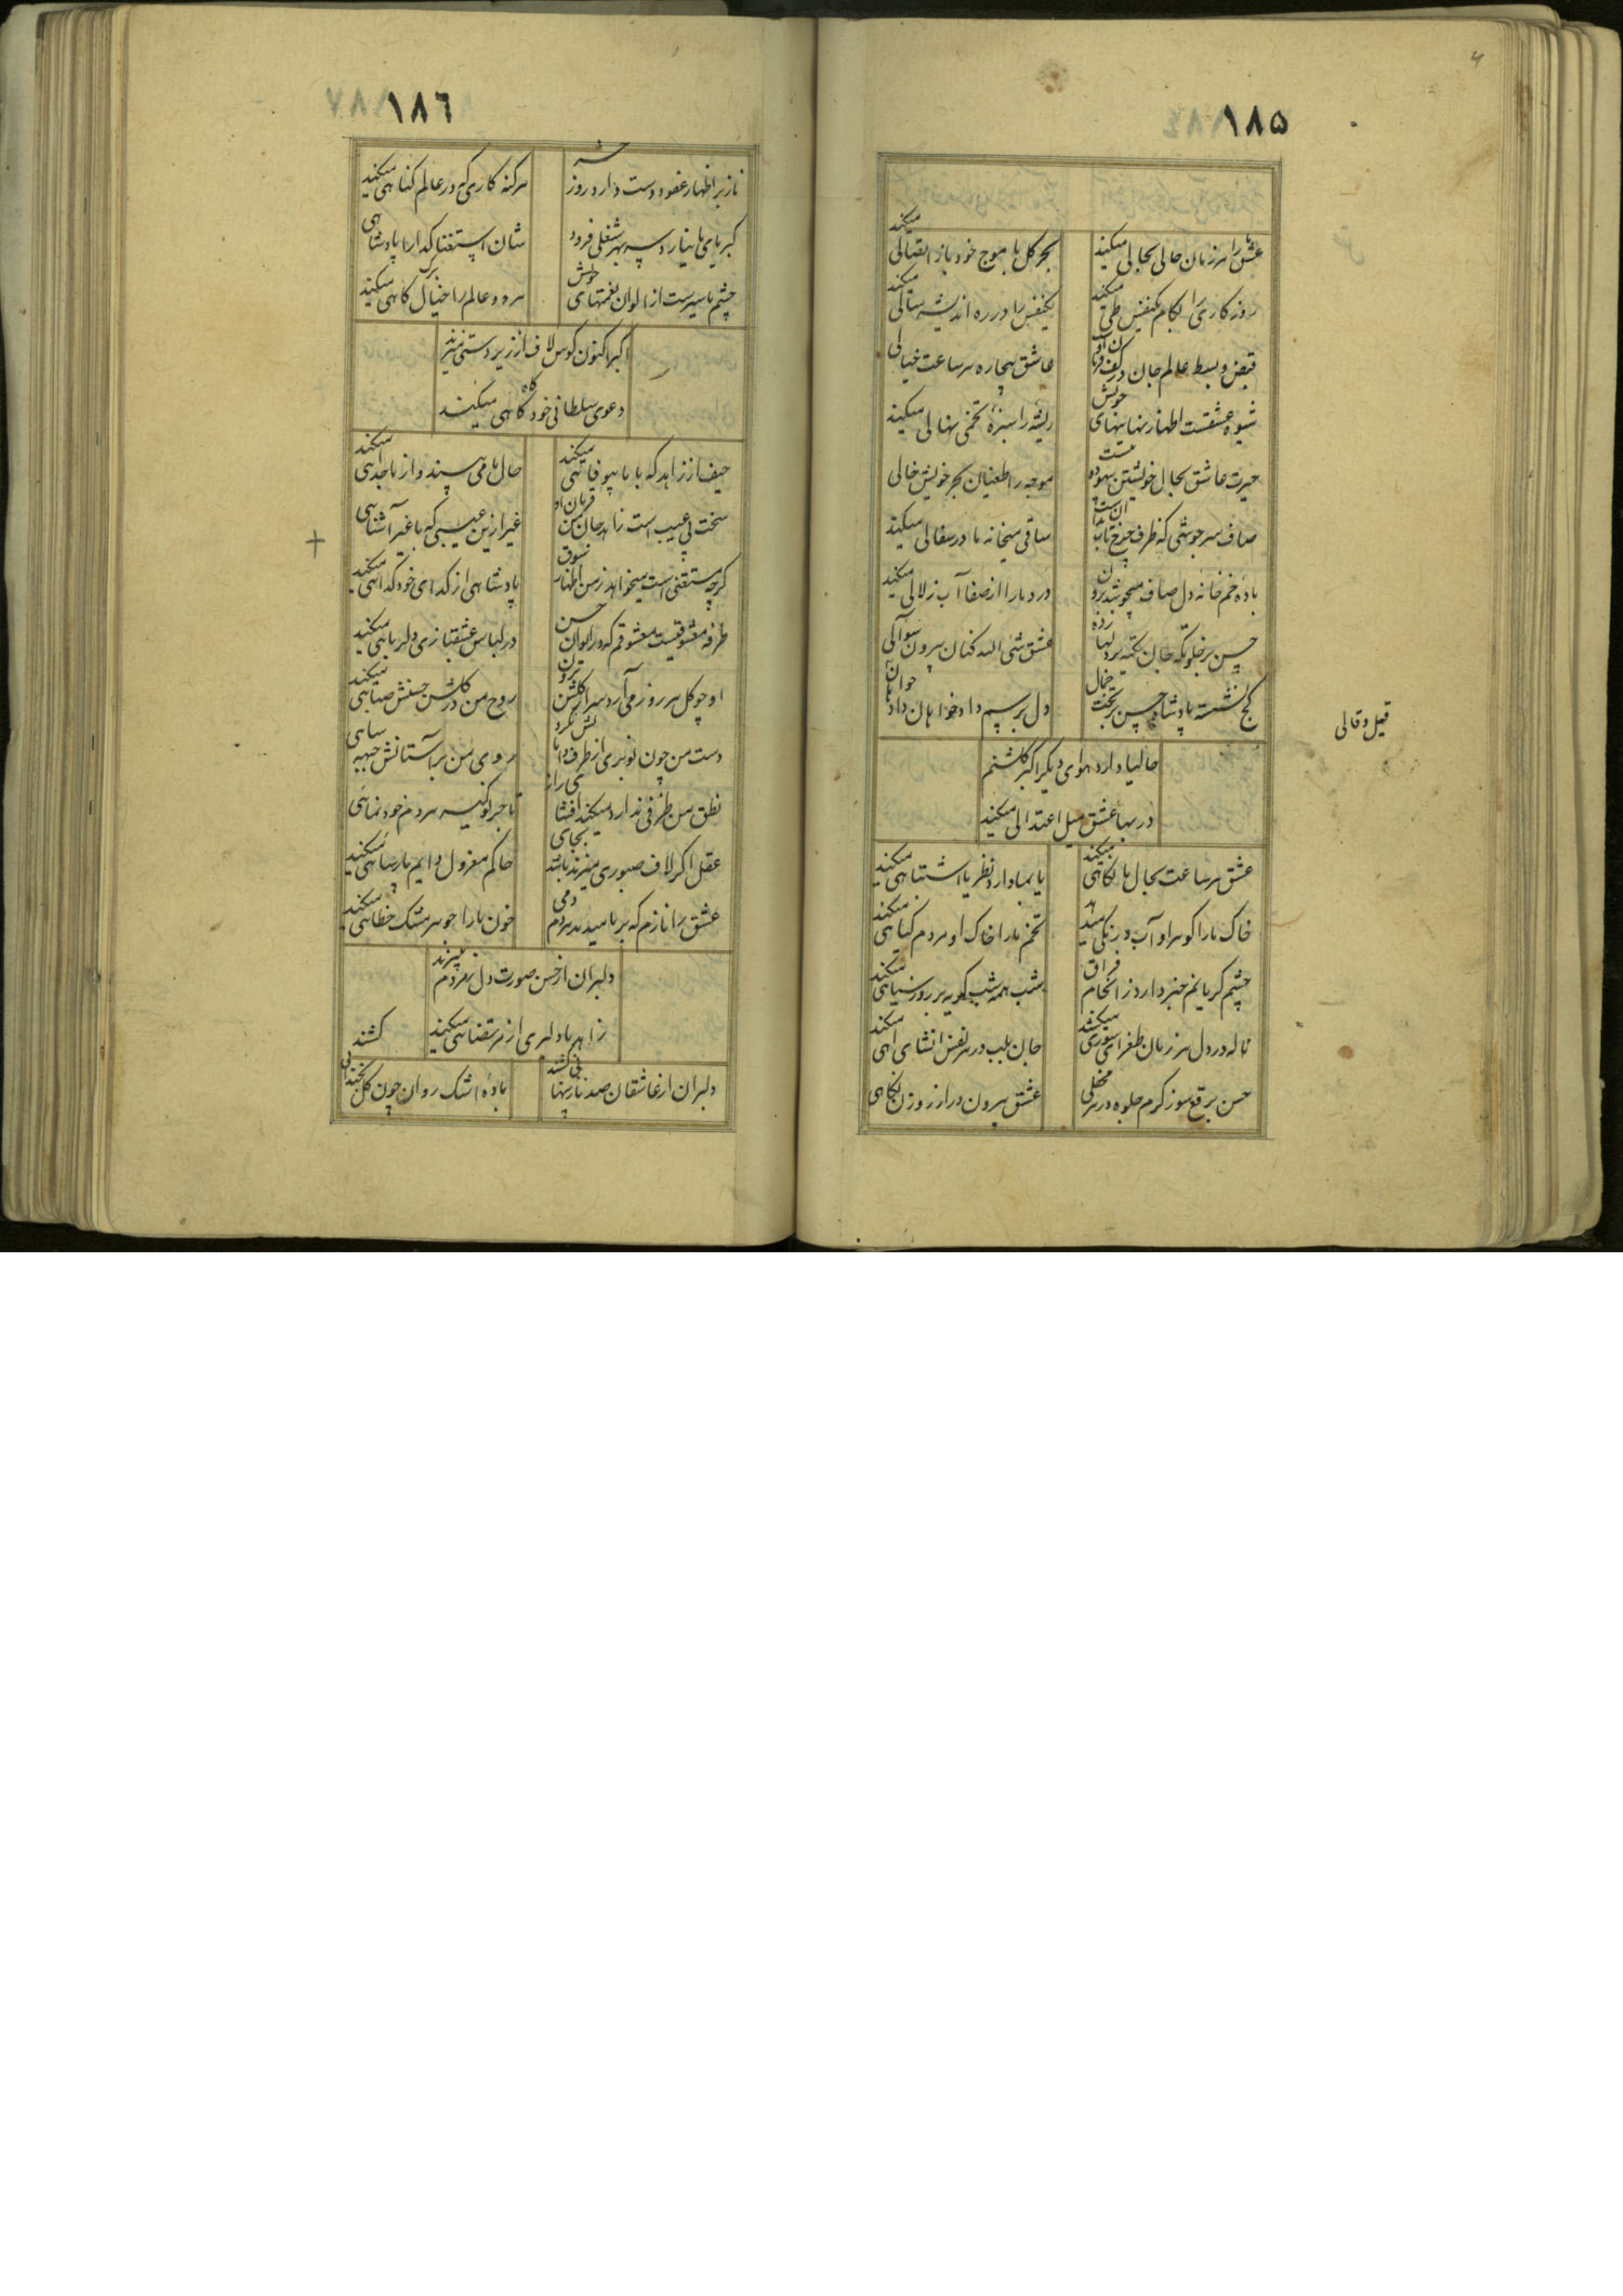 ۱۸۵
عشق ما را هر زمان حالی بحالی میکند
بحر کل با موج خود باز اتصالی میکند
روزکاری را بکام یکنفس طی میکند
یکنفس را در ره اندیشه سالی میکند
قبض و بسط عالم جان در کف فرمان او
عاشق بیچاره هر ساعت خیالی
شیوه عشقست اظهار نهانیهای خویش
ریشه را سبزه تخمی نهالی میکند
حیرت عاشق بحال خویشتن بیهوده نیست
موجه را طغیان بحر خویش خالی
صاف سر جوشی که ظرف چرخ تاب آن نداشت
ساقی میخانه ما در سفالی میکند
باده خمخانه دل صاف میجوشد برون
درد ما را از صفا آب زلالی میکند
حسن بر خلوتکه جان تکیه بر دلها زده
عشق شئی الله کنان بیرون سوالی
کج نشسته پادشاه حسن بر تخت جمال
دل برسم دادخواهان داد
قیل و قالی
حالیا دارد هوای دیکر اکبر کلشنم
در بها عشق میل اعتدالی میکند
عشق هر ساعت بحال ما نکاهی میکند
یا بما دارد نظر یا اشتباهی میکند
خاک ما را کوهر او آب و رنکی میدهد
تخم ما را خاک او مردم کیاهی میکند
چشم کریانم خبر دارد ز انجام فراق
شب همه شب کریه بر روز سیاهی میکند
ناله در دل هر زمان طغرای شوری میکشد
جان بلب در هر نفس انشای آهی میکند
حسن برقع سوز کرم جلوه در هر محفلی
عشق بیرون در از روزن نکاهی
۱۸۶
ناز بر اظهار عفو دوست دارد روز حشر
هر کنه کاری که در عالم کناهی میکند
کبریای ما نیارد سر بهر شغلی فرود
شان استغنا کدا را پادشاهی
چشم ما سیرست از الوان نعمتهای خویش
هر دو عالم را خیال برک کاهی میکند
اکبر اکنون کوس لاف از زیردستی میزند
دعوی سلطانی خود کاه کاهی میکند
حیف از زاهد که با ما بیوفائی میکند
حال ما می بیند و از ما جدائی میکند
سخت بی عیب است زاهد جان من قربان او
غیر ازین عیبی که با غیر آشنایی
کرچه مستغنی است میخواهد ز من اظهار شوق
پادشاهی از کدای خود کدائی میکند
طرفه معشوقیست معشوقم که در الوان حسن
در لباس عشقبازی دلربایی میکند
او چو کل هر روز می آرد سر از کلشن برون
روح من در کلشن حسنش صبائی میکند
دست من چون نوبری از طرف دامانش نکرد
روی من بر آستانش جبهه سایی
نطق من ظرفی ندارد میکند افشای راز
تاجر نوکیسه هر دم خودنمائی
عقل اکر لاف صبوری میزند باشد بجای
حاکم معزول دایم پارسایی میکند
عشق را نازم که بر ما میدمد هر دم دمی
خون ما را جوهر مشک خطایی میکند
دلبران از حسن صورت دل ز مردم میبرند
زاهر ما دلبری از مرتضایی میکند
دلبران از عاشقان صد ناز پنهانی کشند
باده اشک روان چون کل بخندانی کشند